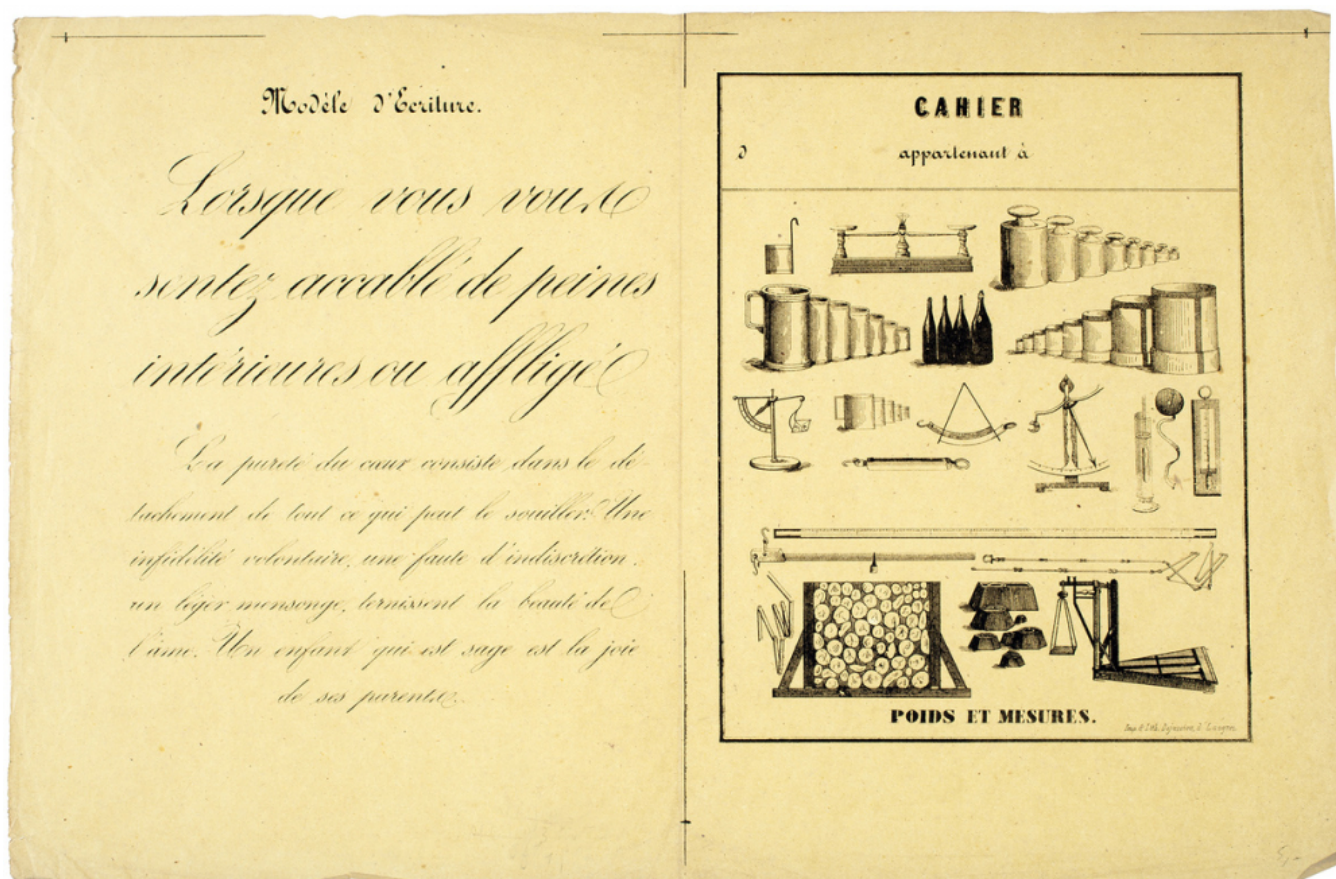 Modèle d'Ecriture.
Lorsque vous vous
sentez accablé de peines
intérieures ou affligé
La pureté du cœur consiste dans le dé-
tachement de tout ce qui peut le souiller. Une
infidélité volontaire, une faute d'indiscrétion,
un léger mensonge, ternissent la beauté de
l'âme. Un enfant qui est sage est la joie
de ses parents.
CAHIER
d appartenant à
POIDS ET MESURES.
Imp. & Lith. à Langon